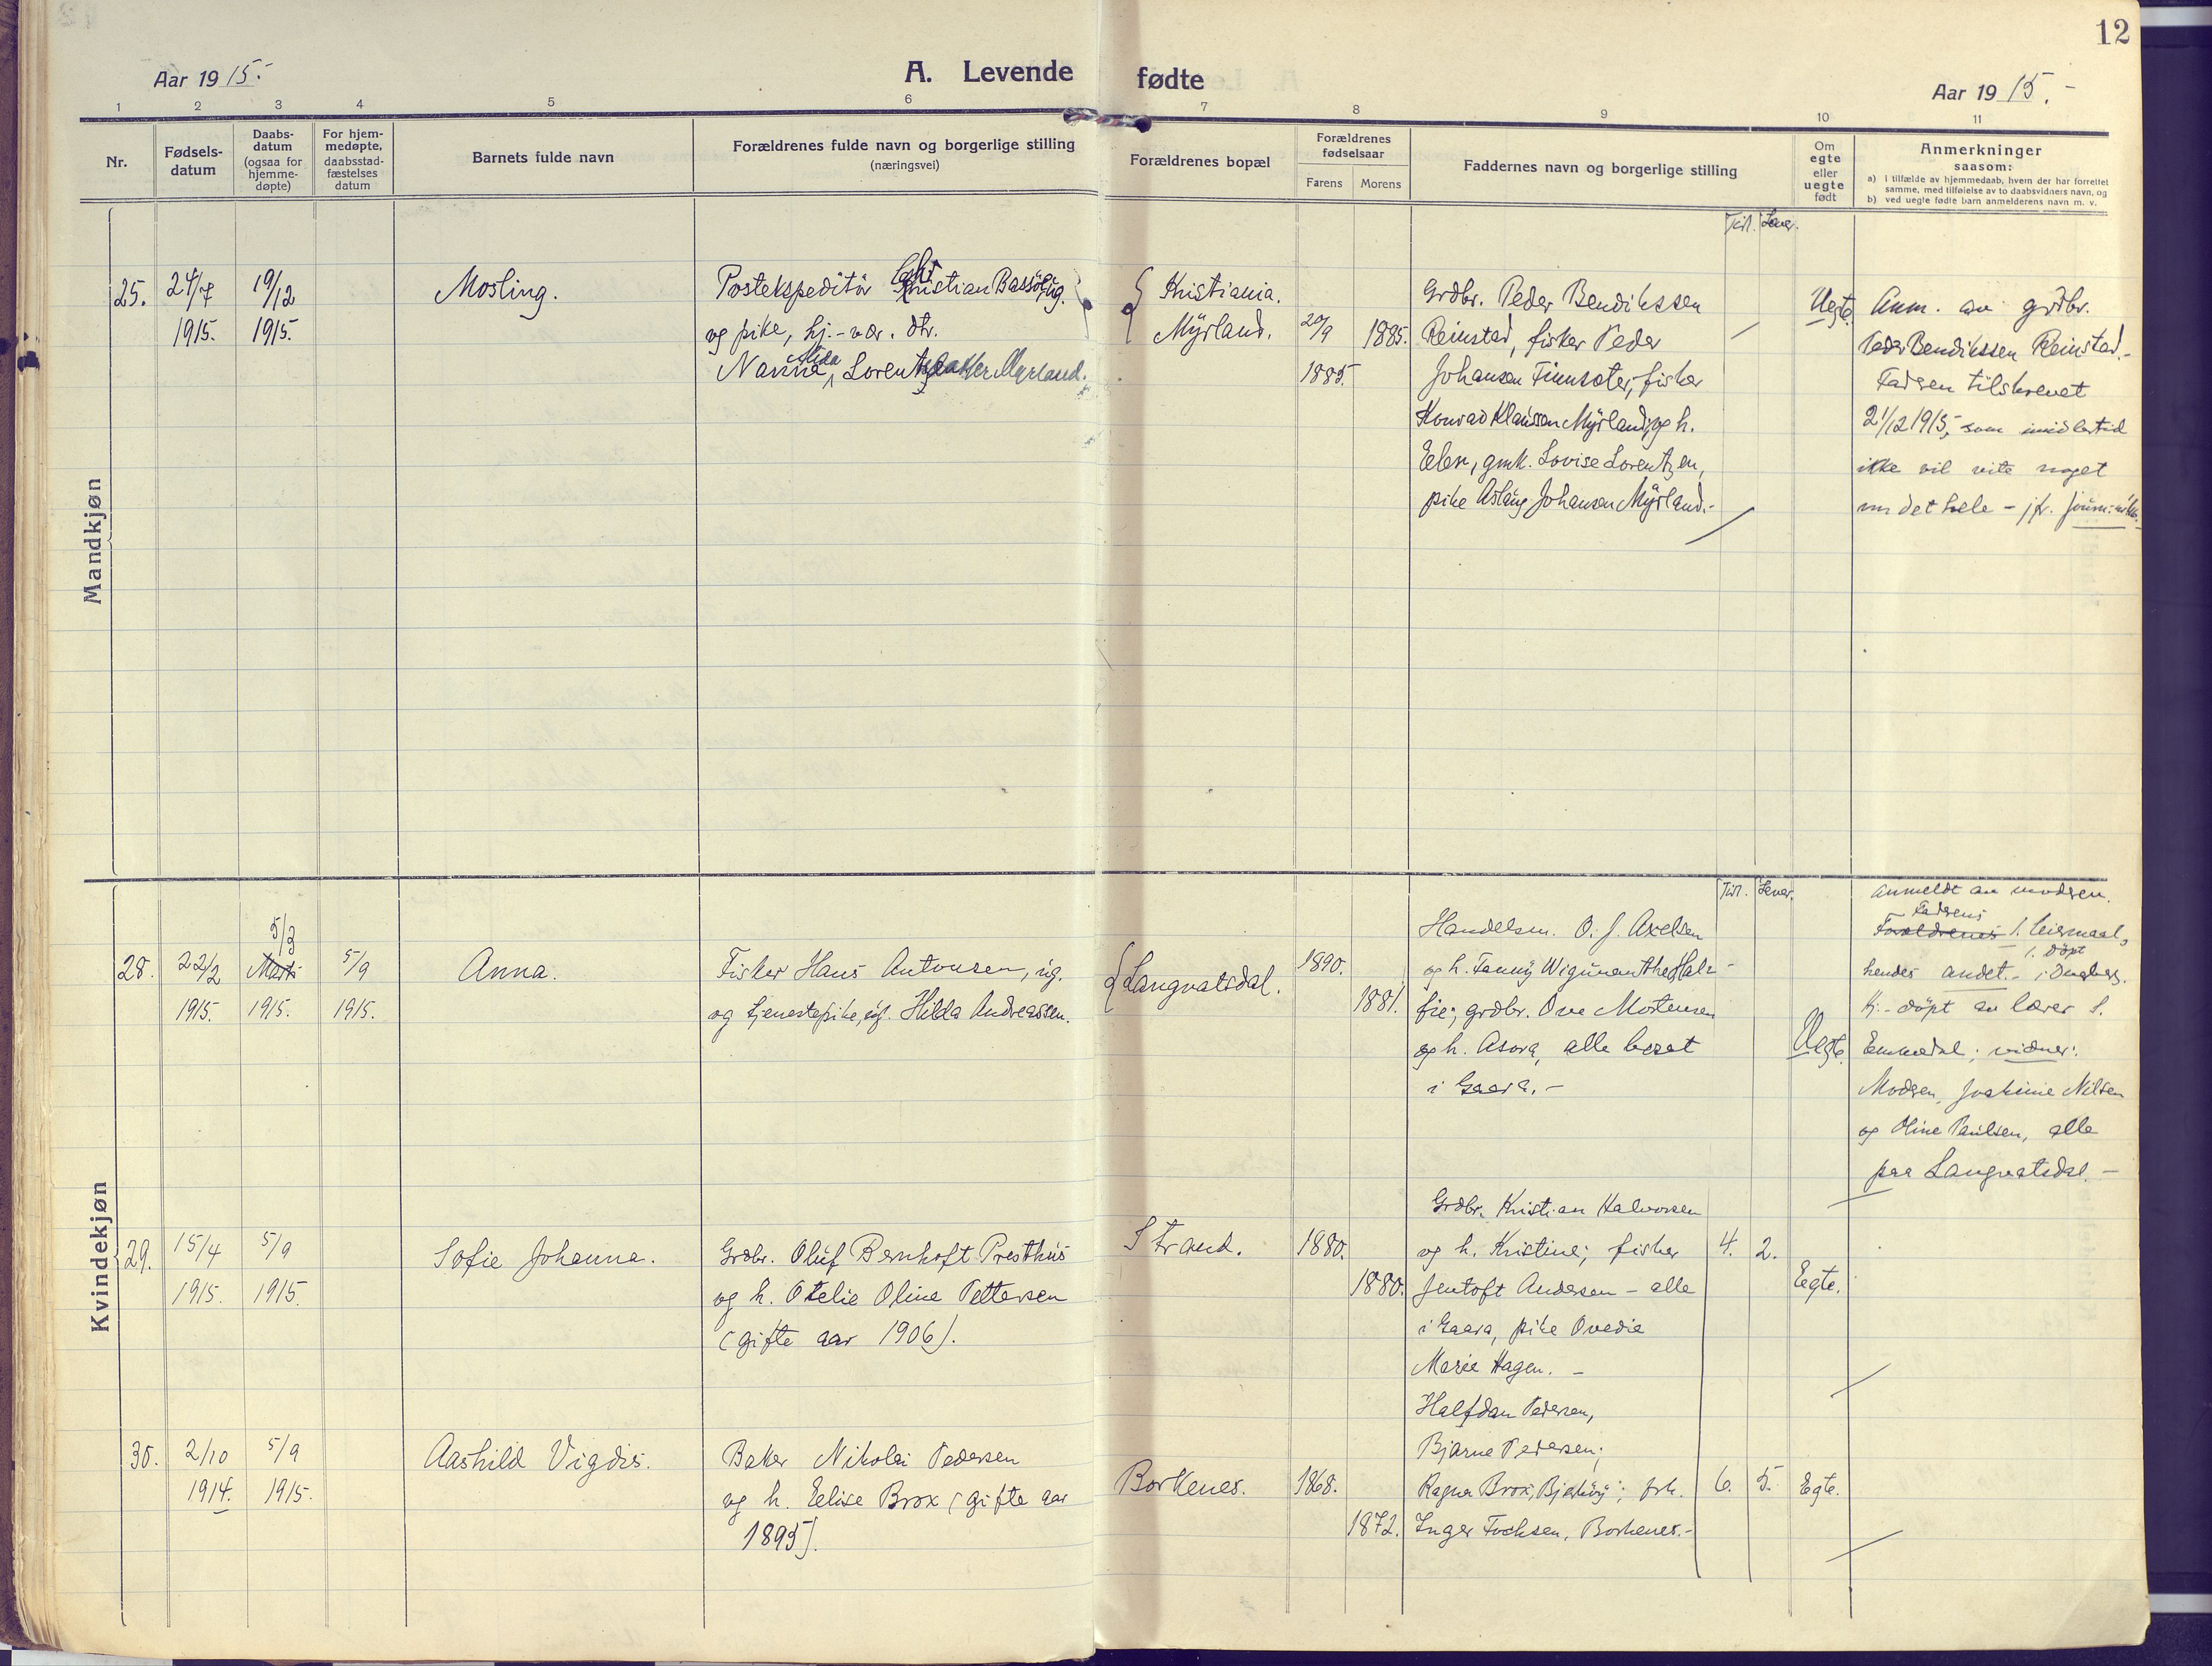 12
Aar 1915.-
A. Levende fødte
Aar 1915.-
1 2 3 4 5 6 7 8 9 10 11
Nr.
Fødsels-
datum
Daabs-
datum
(ogsaa for
hjemme-
døpte)
For hjem-
medøpte,
daabsstad-
fæstelses
datum
Barnets fulde navn
Forældrenes fulde navn og borgerlige stilling
(næringsvei)
Forældrenes bopæl
Forældrenes
fødselsaar
Farens Morens
Faddernes navn og borgerlige stilling
Om
egte
eller
uegte
født
Anmerkninger
saasom:
a) i tilfælde av hjemmedaab, hvem der har forrettet
samme, med tilføielse av to daabsvidners navn, og
b) ved uegte fødte barn anmelderens navn m. v.
Mandkjøn
Til. Lever.
25.
24/7
1915.
19/12
1915.
Mosling.
Postekspeditör Kristian
og pike, hj.-vær. dtr.
Nanna Alida Lorentz Myrland.
Kristiania.
Myrland.
20/9
1885.
1885.
Grdbr. Peder Bendikssen
Reinstad, fisker Peder
Johansen Finnsæter, fisker
Konrad Klaussen Myrland, og h.
Elen, gmk. Lovise Lorentzen,
pike Aslaug Johansen Myrland.-
Uegte.
Anm. av grdbr.
Peder Bendikssen Reinstad.-
Fadren tilskrevet
21/12 1915, som imidlertid
ikke vil vite noget
om det hele - jfr.
Kvindekjøn
Til. Lever.
28.
22/2
1915.
5/3
1915.
5/9
1915.
Anna.
Fisker Hans Antonsen, ug.
og tjenestepike, ug. Hilda Andreassen.
Langvatsdal.
1890.
1881.
Handelsm. O. J. Axelsen
og h. Fanny
grdbr. Ove Mortensen
og h. Asora, alle bosat
i Gaara.-
Uegte.
Anmeldt av modren.
Fadrens
Forældrenes 1. leiermaal,
1. döpt
hendes andet.-
Hj.-döpt av lærer S.
Emmedal; vidner:
Modren, Joakime Nilsen
og Oline Paulsen, alle
paa Langvatsdal.-
29.
15/4
1915.
5/9
1915.
Sofie Johanna.
Grdbr. Oluf Bernhoft Presthus
og h. Otelie Oline Pettersen
(gifte aar 1906).
Strand.
1880.
1880.
Grdbr. Kristian Halvorsen
og h. Kristine; fisker
Jentoft Andersen - alle
i Gaara, pike Ovedie
Marie Hagen.-
4. 2.
Egte.
30.
2/10
1914.
5/9
1915.
Aashild Vigdis.
Baker Nikolai Pedersen
og h. Elise Brox (gifte aar
1895).
Borkenes.
1868.
1872.
Halfdan Pedersen,
Bjarne Pedersen;
Ragna Brox, frk.
Inger Fochsen, Borkenes.-
6. 5.
Egte.